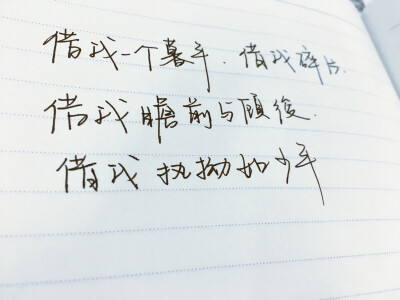 借我一个暮年.借我碎片.
借我瞻前与顾後.
借我执拗如少年